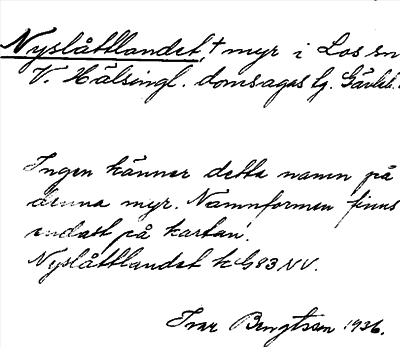 Nyslåttlandet,† myr i Los sn
V. Hälsingl. domsagas lg. Gävleb.
Ingen känner detta namn på
denna myr. Namnformen finns
endast på kartan.
Nyslåttlandet kbl 93 NV.
Ivar Bengtson 1936.